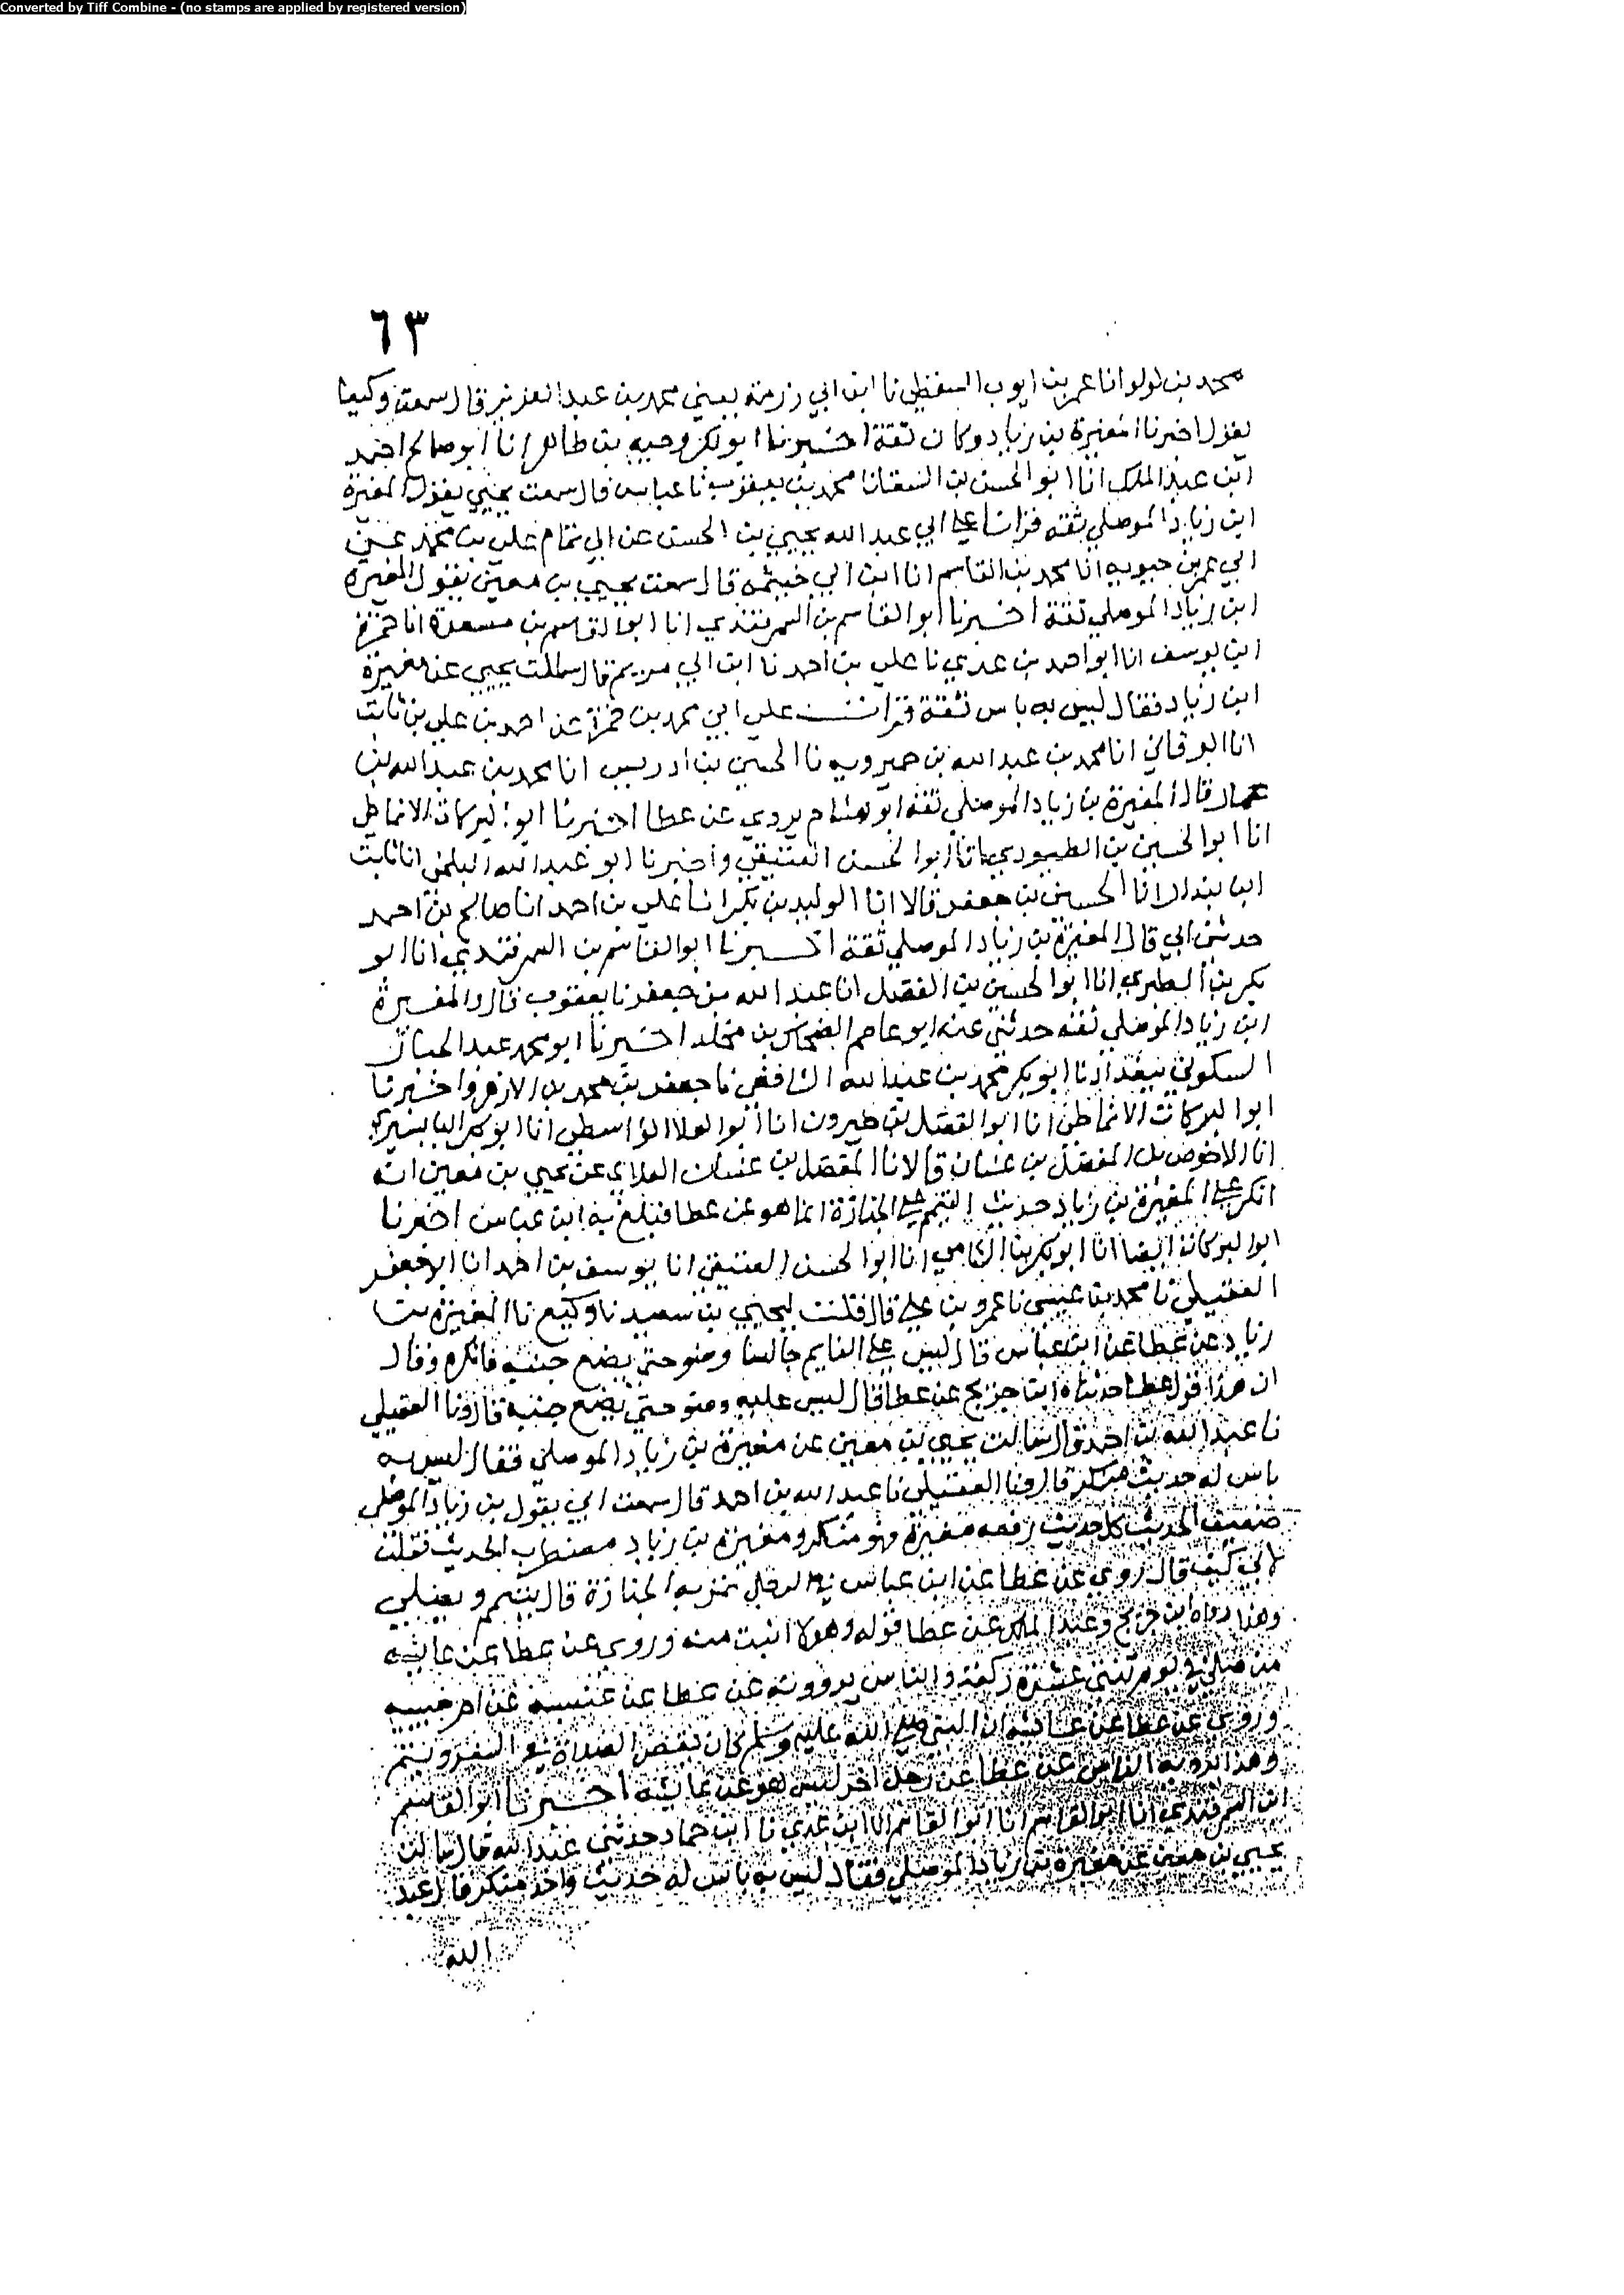 Converted by Tiff Combine - (no stamps are applied by registered version)
٦٣
محمد بن لولو انا عمر بن ايوب السقطي نا ابن ابي رزمة يعني محمد بن عبد العزيز قال سمعت وكيعا
يقول اخبرنا المغيرة بن زياد وكان ثقة اخبرنا ابو بكر وجيه بن طاهر انا ابو صالح احمد
ابن عبد الملك انا ابو الحسن بن السقا نا محمد بن يعقوب نا عباس قال سمعت يحيي يقول المغيرة
ابن زياد الموصلي ثقه قرانا علي ابي عبد الله يحيي بن الحسن عن ابي تمام علي بن محمد عن
ابي عمر بن حيويه انا محمد بن القاسم انا ابن ابي خيثمه قال سمعت يحيي بن معين يقول المغيره
ابن زياد الموصلي ثقة اخبرنا ابو القاسم بن السمرقندي انا ابو القاسم بن مسعدة انا حمزة
ابن يوسف انا ابو احمد بن عدي نا علي بن احمد نا ابن ابي مريم قال سالت يحيي عن مغيرة
ابن زياد فقال ليس به باس ثقة قرات علي ابي محمد بن حمزة عن احمد بن علي بن ثابت
انا البرقاني انا محمد بن عبد الله بن خميرويه نا الحسين بن ادريس انا محمد بن عبد الله بن
عمار قال المغيرة بن زياد الموصلي ثقة ابو هشام يروي عن عطا اخبرنا ابو البركات الانماطي
انا ابو الحسين بن الطيوري انا ابو الحسن العتيقي واخبرنا ابو عبد الله البلخي انا ثابت
ابن بندار انا الحسين بن جعفر قالا انا الوليد بن بكر انا علي بن احمد انا صالح بن احمد
حدثني ابي قال المغيرة بن زياد الموصلي ثقة اخبرنا ابو القاسم بن السمرقندي انا ابو
بكر بن الطبري انا ابو الحسين بن الفضل انا عبد الله بن جعفر نا يعقوب قال والمغيرة
ابن زياد الموصلي ثقه حدثني عنه ابو عاصم الضحاك بن مخلد اخبرنا ابو محمد عبد الجبار
السكوني ببغداد نا ابو بكر محمد بن عبد الله الشافعي نا جعفر بن محمد بن الازهر واخبرنا
ابو البركات الانماطي انا ابو الفضل بن خيرون انا ابو العلا الواسطي انا ابو بكر البابسيري
انا الاحوص بن المفضل بن غسان قالا نا المفضل بن غسان الغلابي عن يحيي بن معين انه
انكر علي المغيرة بن زياد حديث التيمم علي الجنازة انما هو عن عطا فبلغ به ابن عباس اخبرنا
ابو البركات ايضا انا ابو بكر بن الشامي انا ابو الحسن العتيقي انا يوسف بن احمد انا ابو جعفر
العقيلي نا محمد بن عيسى نا عمرو بن علي قال قلت ليحيي بن سعيد نا وكيع نا المغيرة بن
زياد عن عطا عن ابن عباس قال ليس علي النايم جالسا وضو حتي يضع جنبه فانكره وقال
ان هذا قول عطا حدثناه ابن جريج عن عطا قال ليس عليه وضو حتي يضع جنبه قال ونا العقيلي
نا عبد الله بن احمد قال سالت يحيي بن معين عن مغيرة بن زياد الموصلي فقال ليس به
باس له حديث منكر قال ونا العقيلي نا عبد الله بن احمد قال سمعت ابي يقول بن زياد الموصلي
ضعيف الحديث كل حديث رفعه مغيرة فهو منكر ومغيرة بن زياد مضطرب الحديث فقلت
لابي كيف قال روي عن عطا عن ابن عباس في الرجل تمر به الجنازة قال يتيمم ويصلي
وهذا رواه ابن جريج وعبد الملك عن عطا قوله وهولا اثبت منه وروي عن عطا عن عايشه
من صلي في يوم ثنتي عشرة ركعة والناس يروونه عن عطا عن عنبسه عن ام حبيبه
وروي عن عطا عن عايشه ان النبي صلي الله عليه وسلم كان يقصر الصلاة في السفر ويتم
وهذا يرويه الناس عن عطا عن رجل اخر ليس هو عن عايشه اخبرنا ابو القاسم
ابن السمرقندي انا ابو القاسم انا ابو القاسم انا ابن عدي نا ابن حماد حدثني عبد الله قال سالت
يحيي بن معين عن مغيرة بن زياد الموصلي فقال ليس به باس له حديث واحد منكر قال عبد
الله